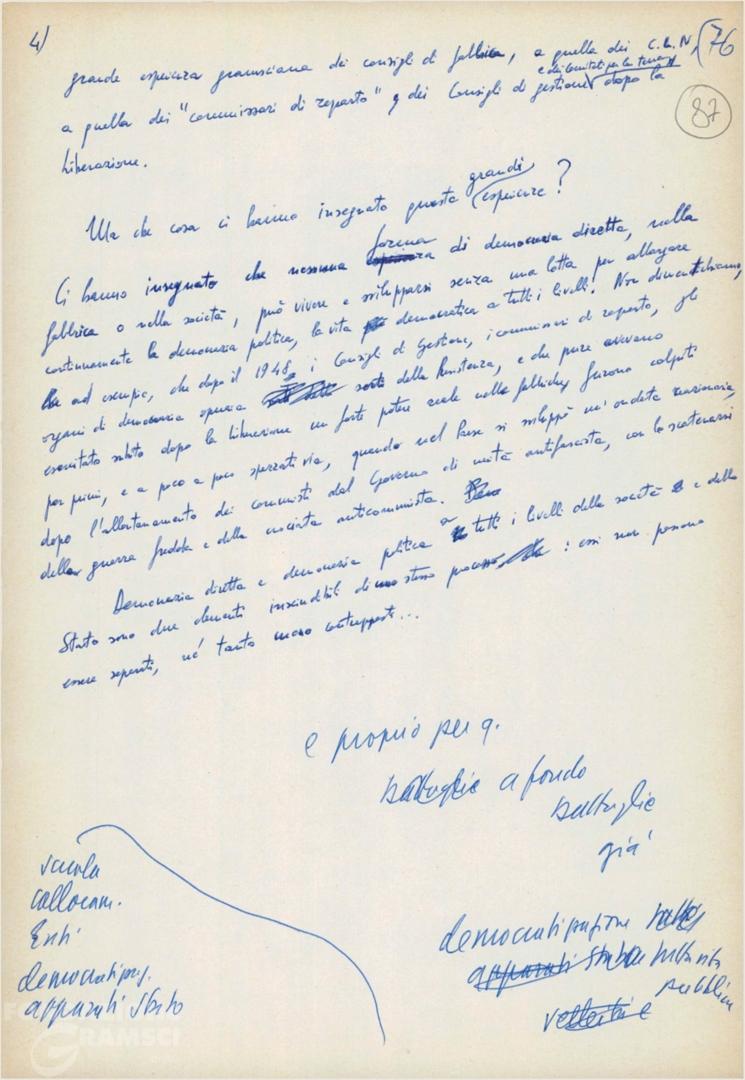 4)
76
87
grande esperienza gramsciana dei consigli di fabbrica, a quella dei C.L.N,
e dei Comitati per la terra
a quella dei "commissari di reparto" e dei Consigli di gestione dopo la
Liberazione.
Ma che cosa ci hanno insegnato queste grandi esperienze?
Ci hanno insegnato che nessuna forma di democrazia diretta, nella
fabbrica o nella società, può vivere e svilupparsi senza una lotta per allargare
continuamente la democrazia politica, la vita democratica a tutti i livelli. Non dimentichiamo,
ad esempio, che dopo il 1948, i Consigli di Gestione, i commissari di reparto, gli
organi di democrazia operaia sorti dalla Resistenza, e che pure avevano
esercitato subito dopo la Liberazione un forte potere reale nelle fabbriche, furono colpiti
per primi, e a poco a poco spazzati via, quando nel Paese si sviluppò un'ondata reazionaria,
dopo l'allontanamento dei comunisti dal Governo di unità antifascista, con lo scatenarsi
della guerra fredda e della crociata anticomunista.
Democrazia diretta e democrazia politica a tutti i livelli della società e dello
Stato sono due elementi inscindibili di uno stesso processo: essi non possono
essere separati, né tanto meno contrapposti...
e proprio per q.
battaglie a fondo
battaglie
già
scuola
collocam.
Enti
democratizzaz.
apparati Stato
democratizzazione
apparati Stato
pubblica
FONDAZIONE
GRAMSCI